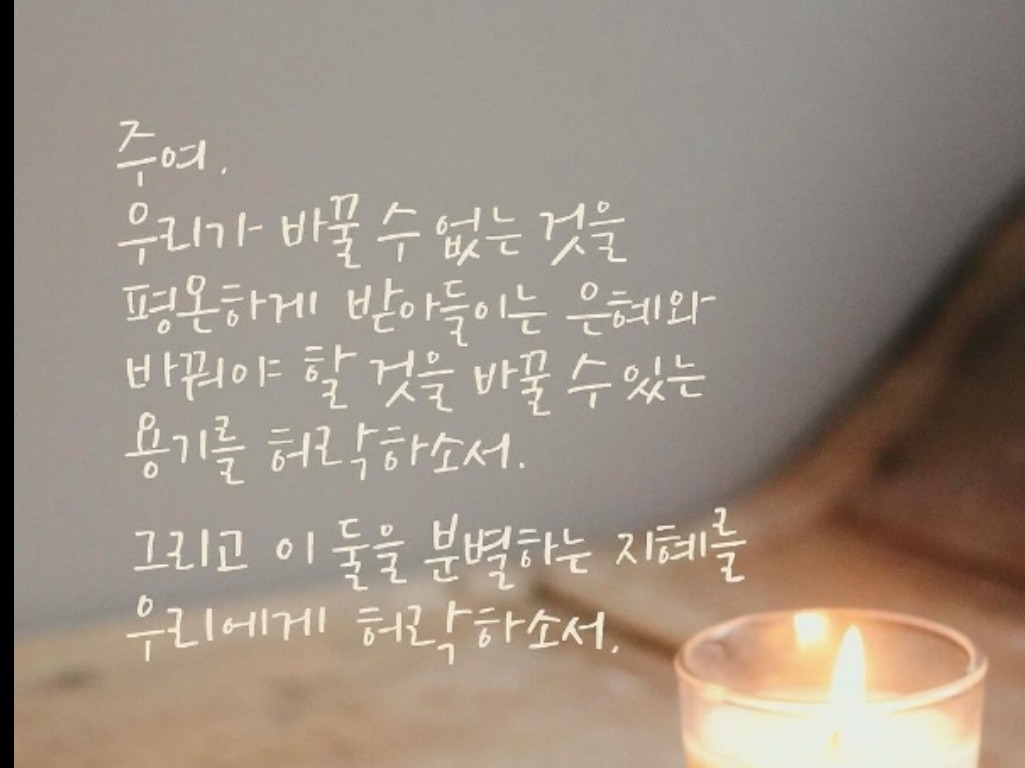 주여.
우리가 바꿀 수 없는 것을
평온하게 받아들이는 은혜와
바꿔야 할 것을 바꿀 수 있는
용기를 허락하소서.
그리고 이 둘을 분별하는 지혜를
우리에게 허락하소서.